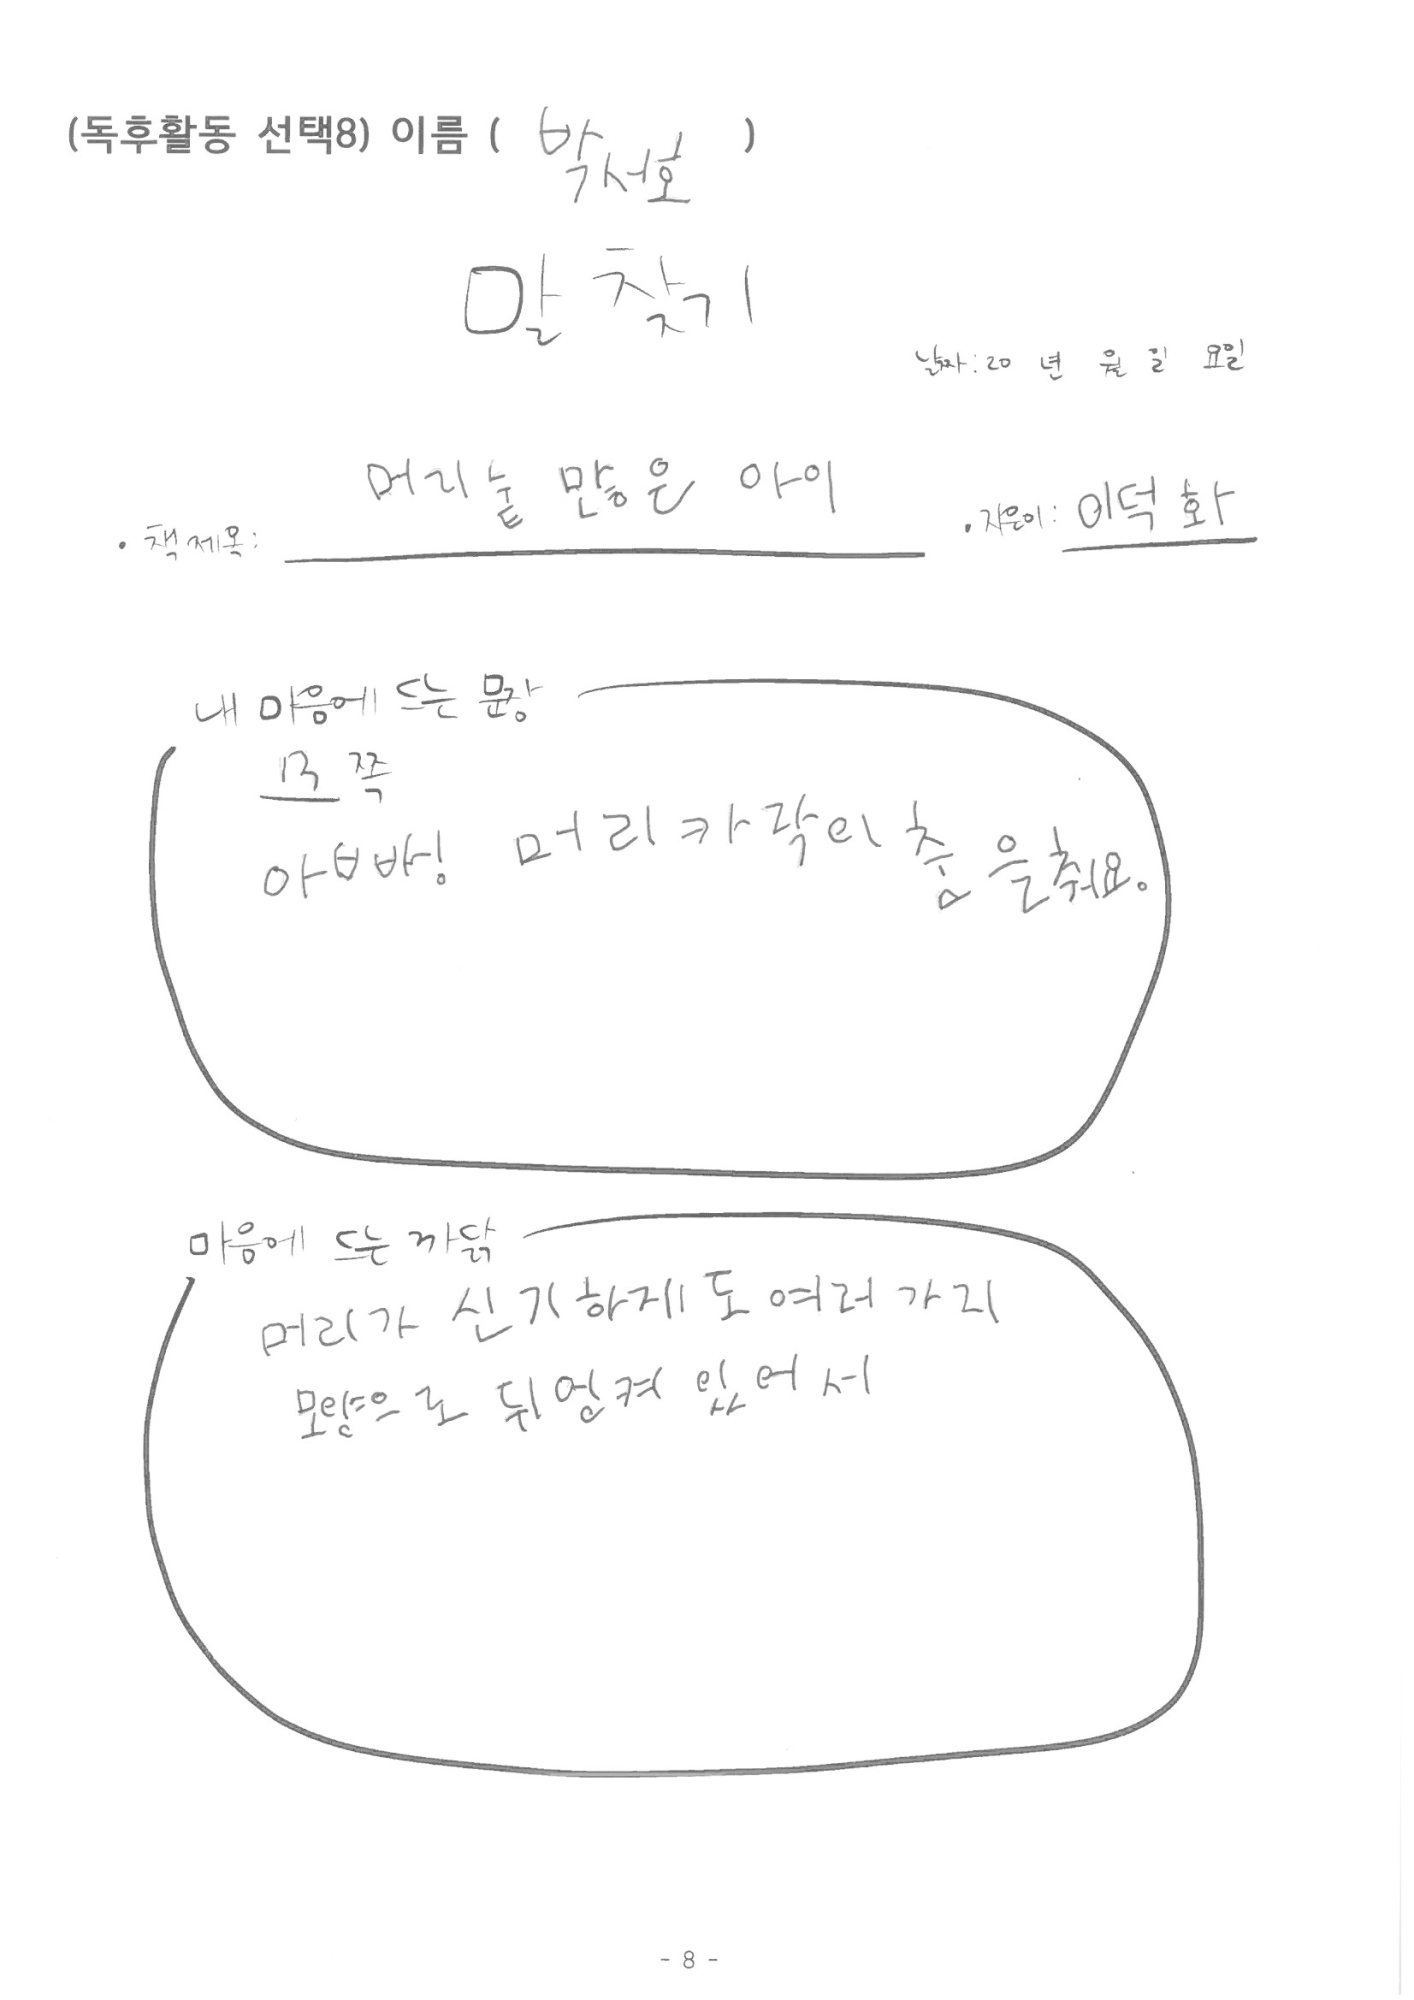 (독후활동 선택8) 이름 ( 박서호 )
말 찾기
날짜:20 년 월 일 요일
• 책 제목: 머리숱 많은 아이 • 지은이: 이덕화
내 마음에 드는 문장
13 쪽
머리카락이 춤을춰요.
마음에 드는 까닭
머리가 신기하게도 여러가지
모양으로 뒤엉켜 있어서
- 8 -